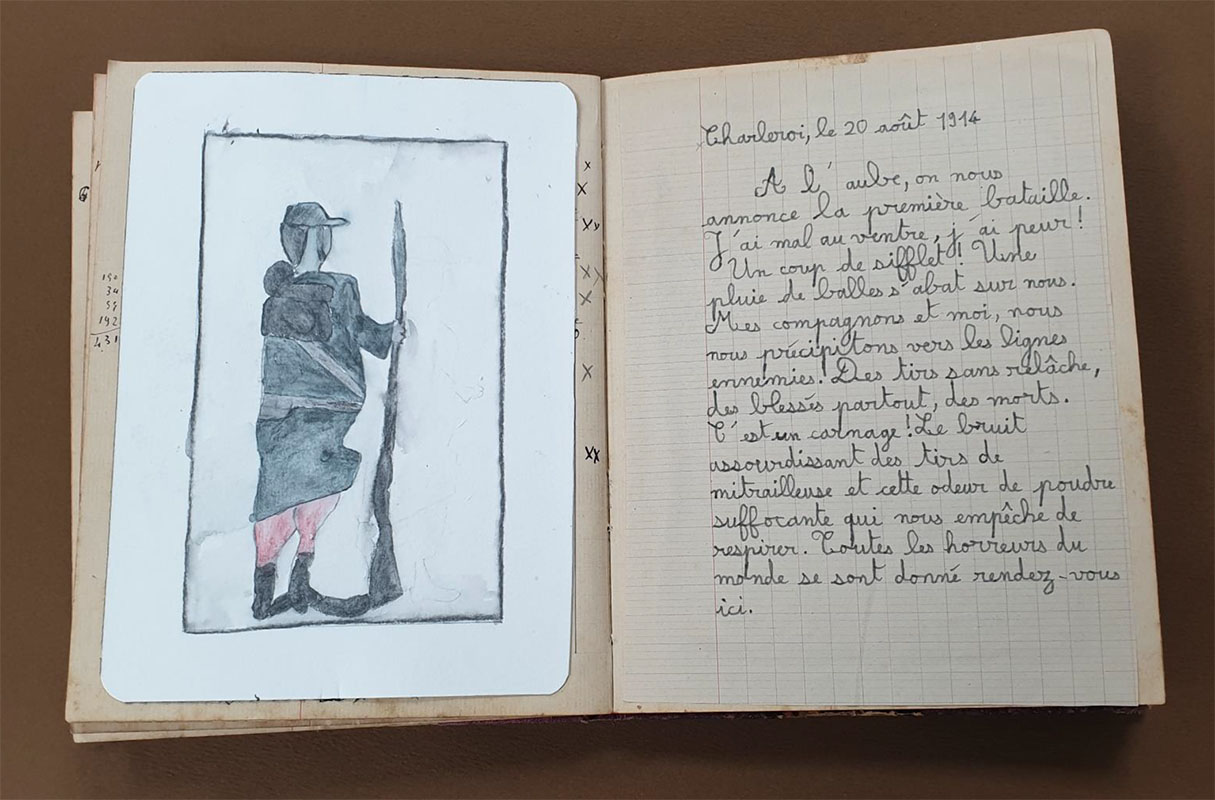 190
34
192
431
x
x
xv
x
x
x
x
xx
Charleroi, le 20 août 1914
A l'aube, on nous
annonce la première bataille.
J'ai mal au ventre, j'ai peur !
Un coup de sifflet ! Une
pluie de balles s'abat sur nous.
Mes compagnons et moi, nous
nous précipitons vers les lignes
ennemies ! Des tirs sans relâche,
des blessés partout, des morts.
C'est un carnage ! Le bruit
assourdissant des tirs de
mitrailleuse et cette odeur de poudre
suffocante qui nous empêche de
respirer. Toutes les horreurs du
monde se sont donné rendez-vous
ici.